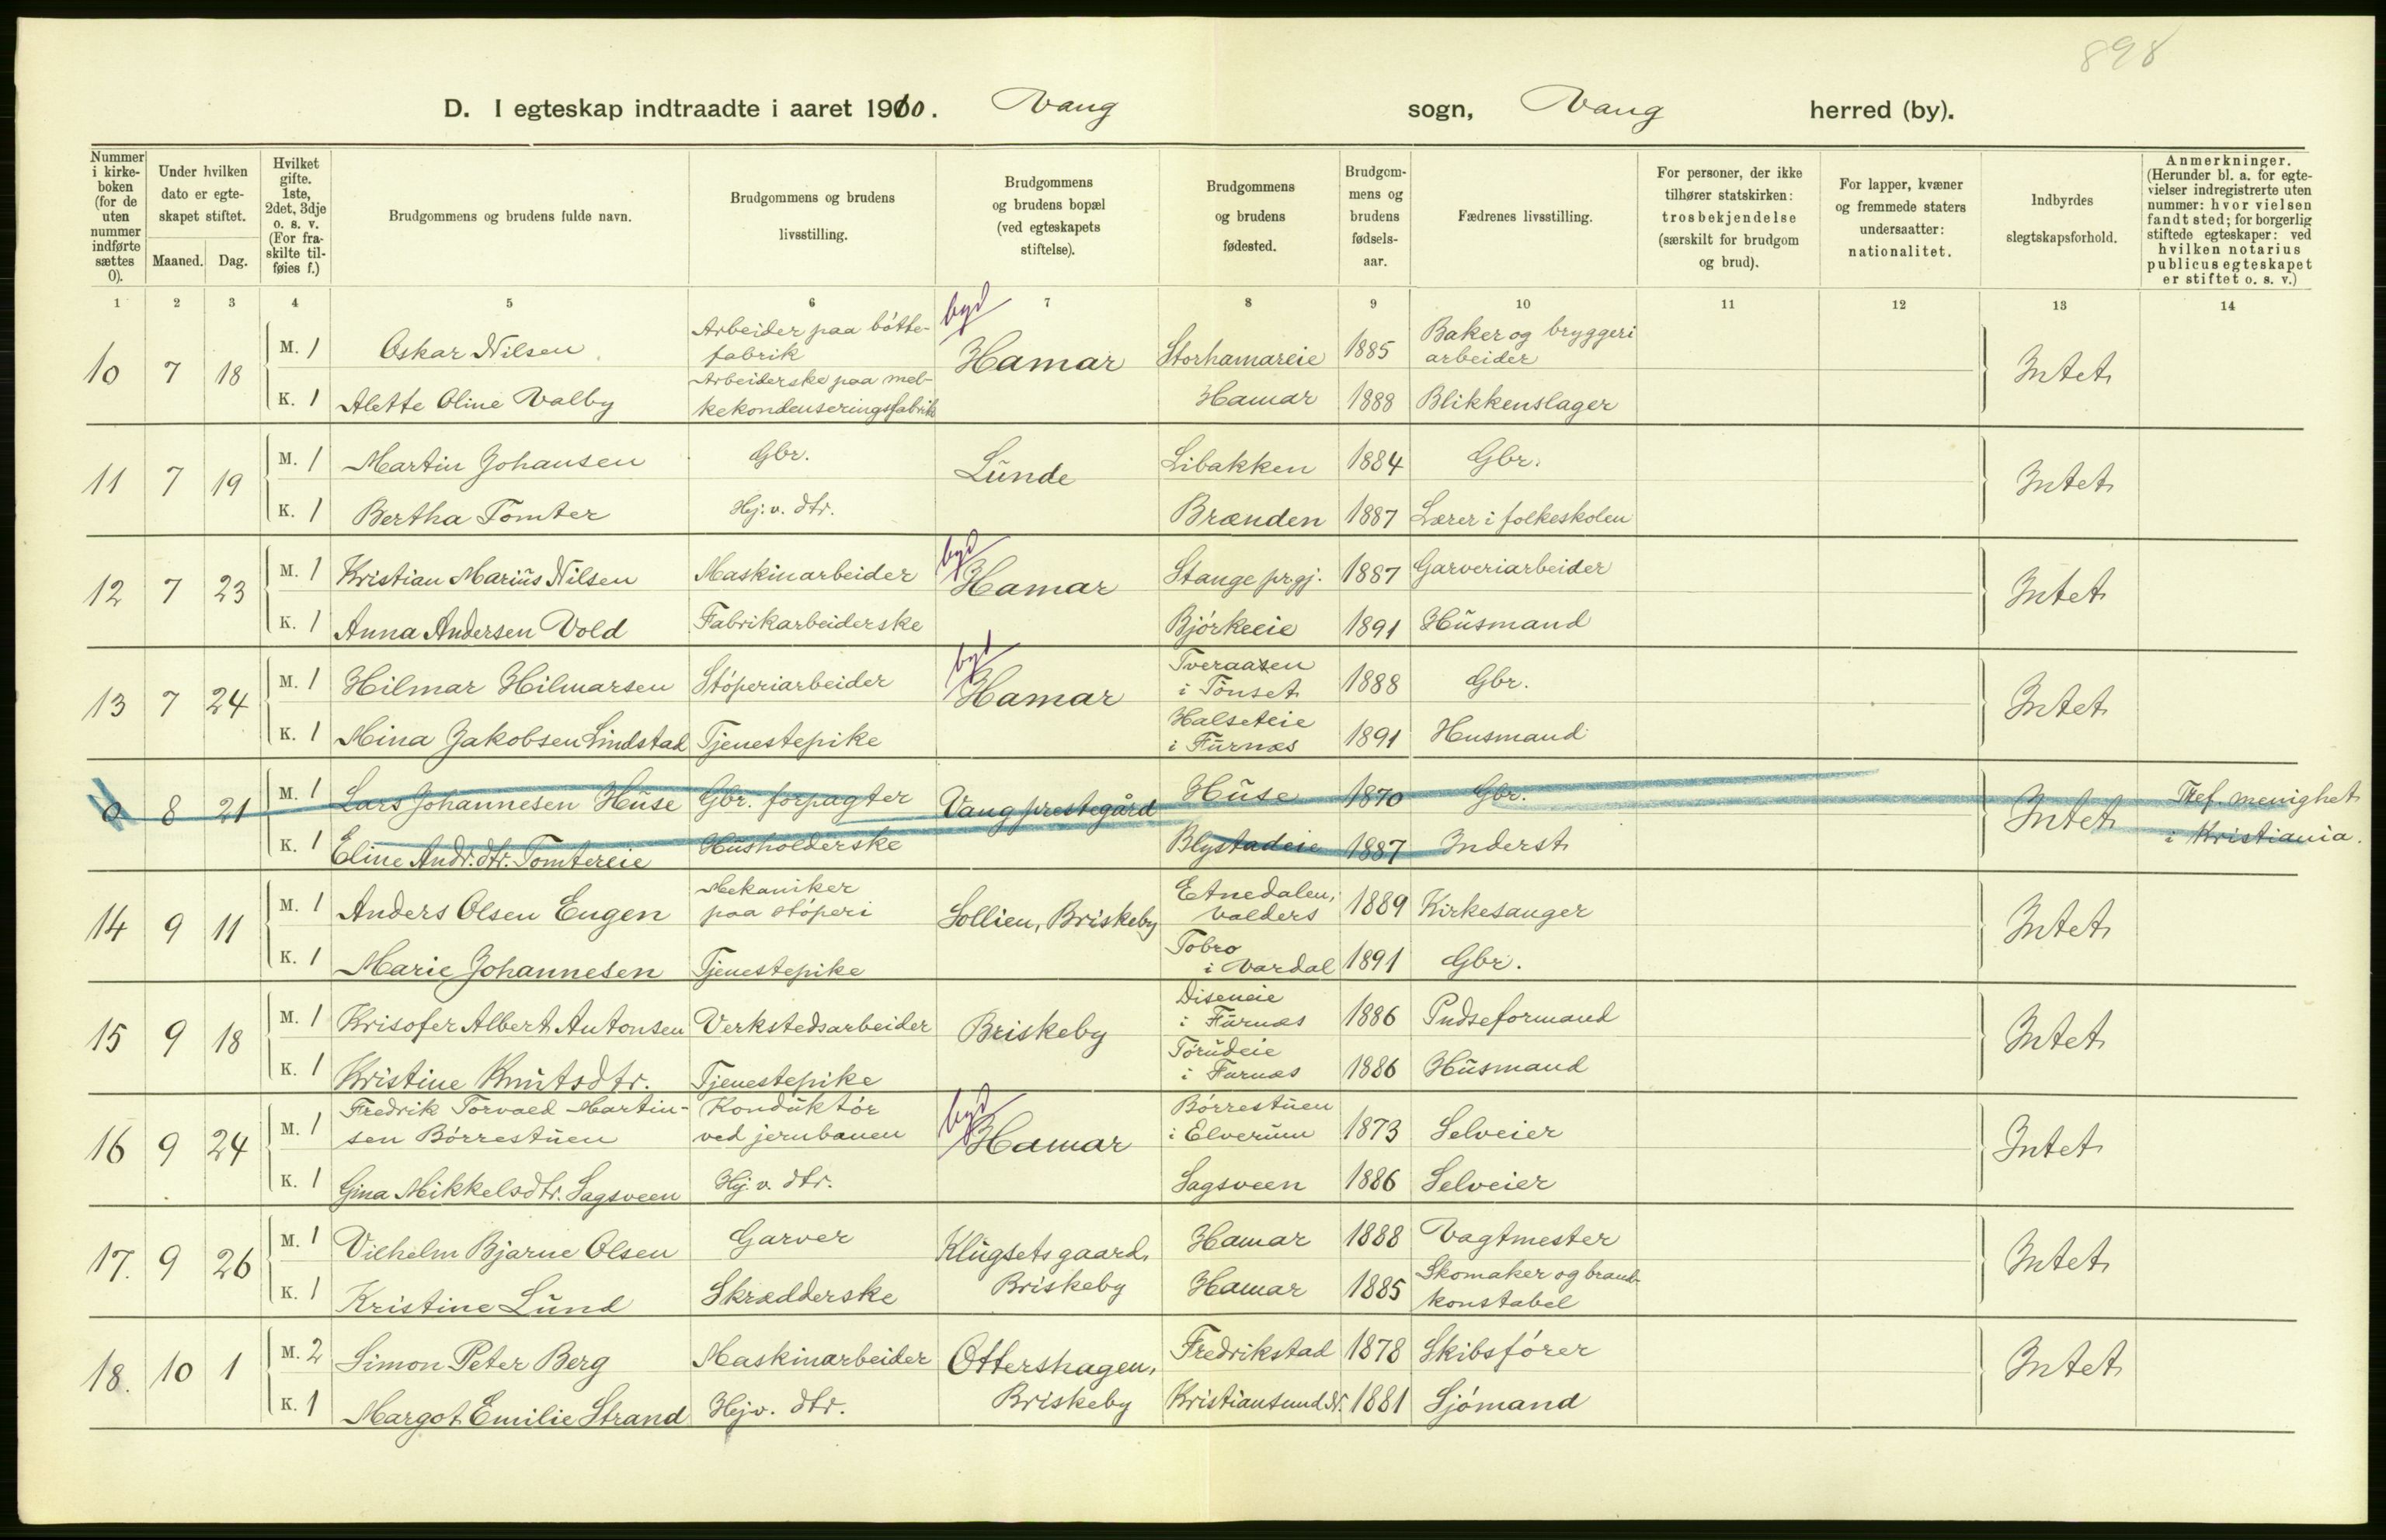 898
D. I egteskap indtraadte i aaret 1910. Vang sogn, Vang herred (by).
Nummer i kirke-boken (for de uten nummer indførte sættes 0).
Under hvilken dato er egte-skapet stiftet.
Maaned. Dag.
Hvilket gifte. 1ste, 2det, 3dje o. s. v. (For fra-skilte til-føies f.)
Brudgommens og brudens fulde navn.
Brudgommens og brudens livsstilling.
Brudgommens og brudens bopæl (ved egteskapets stiftelse).
Brudgommens og brudens fødested.
Brudgom-mens og brudens fødsels-aar.
Fædrenes livsstilling.
For personer, der ikke tilhører statskirken: trosbekjendelse (særskilt for brudgom og brud).
For lapper, kvæner og fremmede staters undersaatter: nationalitet.
Indbyrdes slegtskapsforhold.
Anmerkninger. (Herunder bl. a. for egte-vielser indregistrerte uten nummer: hvor vielsen fandt sted; for borgerlig stiftede egteskaper: ved hvilken notarius publicus egteskapet er stiftet o. s. v.)
1 2 3 4 5 6 7 8 9 10 11 12 13 14
10 7 18 M. 1 Oskar Nilsen Arbeider paa bótte-fabrik byd Hamar Storhamareie 1885 Baker og bryggeri arbeider Intet
K. 1 Alette Oline Valby Arbeiderske paa mel-kekondenseringsfabrik Hamar 1888 Blikkenslager
11 7 19 M. 1 Martin Johansen Gbr. Lunde Libakken 1884 Gbr. Intet
K. 1 Bertha Tomter Hj. v. dtr. Brænden 1887 Lærer i folkeskolen
12 7 23 M. 1 Kristian Marius Nilsen Maskinarbeider byd Hamar Stange prgj. 1887 Garveriarbeider Intet
K. 1 Anna Andersen Vold Fabrikarbeiderske Bjórkeeie 1891 Husmand
13 7 24 M. 1 Hilmar Hilmarsen Stóperiarbeider byd Hamar Tveraasen i Tónset 1888 Gbr. Intet
K. 1 Mina Jakobsen Lindstad Tjenestepike Halseteie i Furnæs 1891 Husmand
0 8 21 M. 1 Lars Johannesen Huse Gbr. forpagter Vang prestegård Huse 1870 Gbr. Intet menighet
K. 1 Eline Andr. dtr. Tomtereie Husholderske Blystadeie 1887 Inderst i Kristiania.
14 9 11 M. 1 Anders Olsen Eugen Mekaniker paa stóperi Sollien, Briskeby Etnedalen, Valders 1889 Kirkesanger Intet
K. 1 Marie Johannesen Tjenestepike Tobro i Vardal 1891 Gbr.
15 9 18 M. 1 Krisofer Albert Antonsen Verkstedsarbeider Briskeby Diseneie i Furnæs 1886 Pudseformand Intet
K. 1 Kristine Knutsdtr. Tjenestepike Tórudeie i Furnæs 1886 Husmand
16 9 24 M. 1 Fredrik Torvald Martin-sen Bórrestuen Konduktór ved jernbanen byd Hamar Bórrestuen i Elverum 1873 Selveier Intet
K. 1 Gina Mikkelsdtr. Sagsveen Hj. v. dtr. Sagsveen 1886 Selveier
17. 9 26 M. 1 Vilhelm Bjarne Olsen Garver Klugsets gaard, Briskeby Hamar 1888 Vagtmester Intet
K. 1 Kristine Lund Skrædderske Hamar 1885 Skomaker og brand-konstabel
18. 10 1 M. 2 Simon Peter Berg Maskinarbeider Ottershagen, Briskeby Fredrikstad 1878 Skibsfórer Intet
K. 1 Margot Emilie Strand Hj. v. dtr. Kristiansund N. 1881 Sjómand